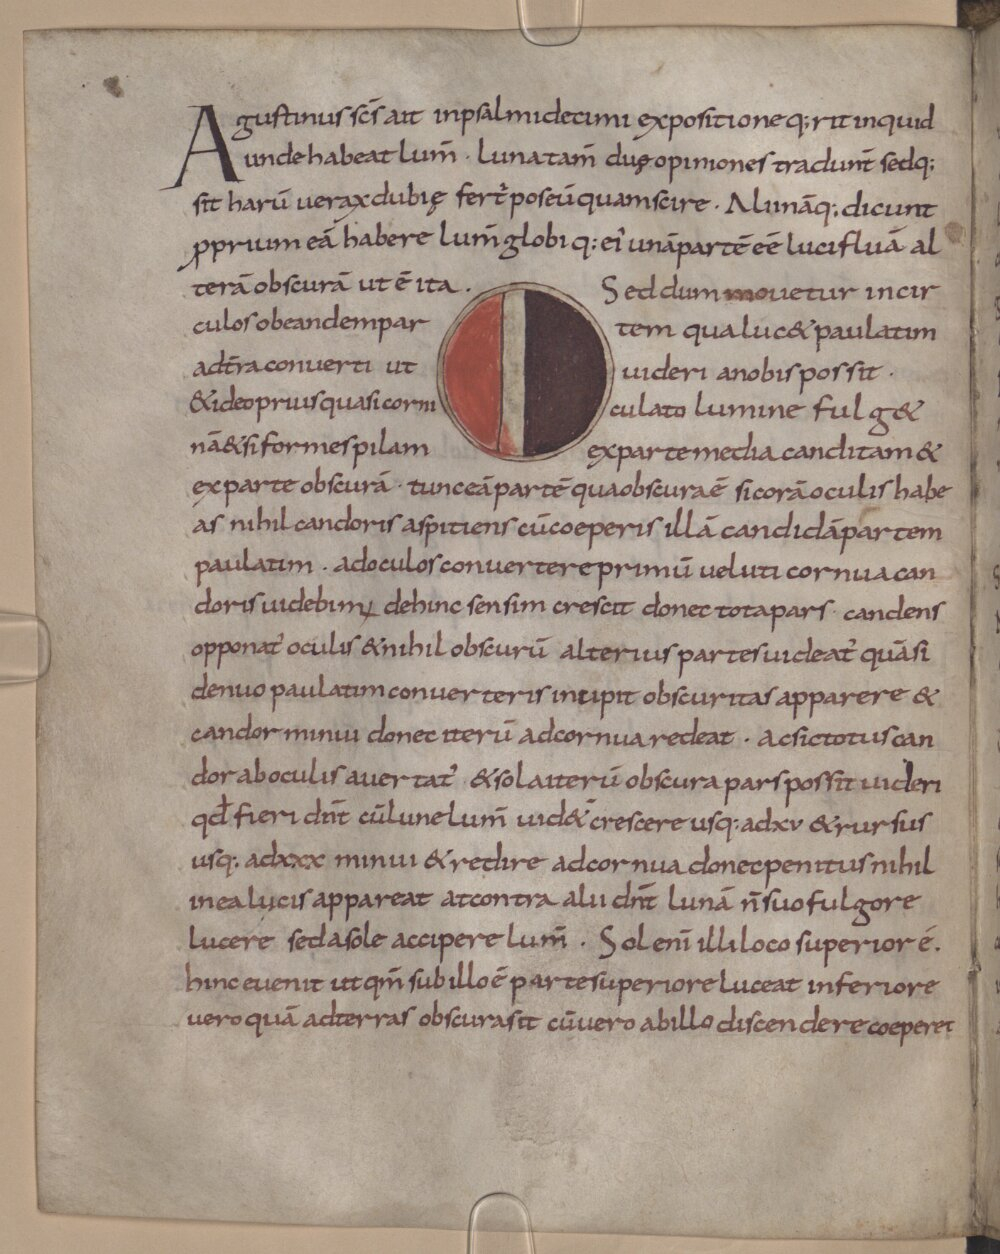 Agustinus scs̄ ait inpsalmi decimi expositione q; rit inquid
unde habeat lum̄ . luna tam̄ duę opiniones tradunt̄ sed q;
sit harū uerax dubię fert᷑ poseū quam scire . Alii nāq; dicunt
pprium eā habere lum̄ globi q; ei᷑ unā partē eē lucifluā al
terā obscurā ut ē ita . Sed dum mouetur incir
culos obeandem par tem qua luc& paulatim
adt̄ra conuerti ut uideri anobis possit .
& ideo prius quasi corni culato lumine fulg&
nā & si formes pilam ex parte media canditam &
ex parte obscurā . tunc eā partē qua obscura ē si corā oculis habe
as nihil candoris aspitiens cū coeperis illā candidā partem
paulatim . adoculos conuertere primū ueluti cornua can
doris uidebim᷒ dehinc sensim crescit donec tota pars candens
opponat᷑ oculis & nihil obscurū alterius partes uideat᷑ quā si
denuo paulatim conuerteris incipit obscuritas apparere &
candor minui donec iterū adcornua redeat . ac sic totus can
dor ab oculis auertat᷑ & sola iterū obscura pars possit uideri
qd̄ fieri dn̄t cū lune lum̄ uid&᷑ crescere usq; adxv & rursus
usq; adxxx minui & redire adcornua donec penitus nihil
in ea lucis appareat at contra alii dn̄t lunā n̄ suo fulgore
lucere sed a sole accipere lum̄ . Sol enī illi loco superior ē .
hinc euenit ut qm̄ sub illo ē parte superiore luceat inferiore
uero quā adterras obscura sit cū uero ab illo discendere coeperet